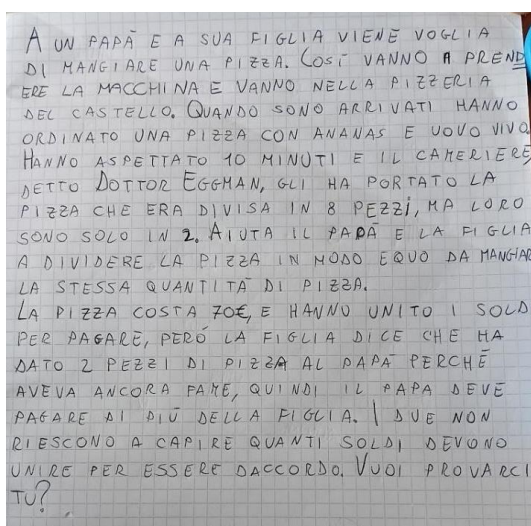 A UN PAPÀ E A SUA FIGLIA VIENE VOGLIA
DI MANGIARE UNA PIZZA. COSÍ VANNO A PREND
ERE LA MACCHINA E VANNO NELLA PIZZERIA
DEL CASTELLO. QUANDO SONO ARRIVATI HANNO
ORDINATO UNA PIZZA CON ANANAS E UOVO VIVO.
HANNO ASPETTATO 10 MINUTI E IL CAMERIERE,
DETTO DOTTOR EGGMAN, GLI HA PORTATO LA
PIZZA CHE ERA DIVISA IN 8 PEZZI, MA LORO
SONO SOLO IN 2. AIUTA IL PAPÀ E LA FIGLIA
A DIVIDERE LA PIZZA IN MODO EQUO DA MANGIAR
LA STESSA QUANTITÀ DI PIZZA.
LA PIZZA COSTA 70€, E HANNO UNITO I SOLD
PER PAGARE, PERÓ LA FIGLIA DICE CHE HA
DATO 2 PEZZI DI PIZZA AL PAPÀ PERCHÉ
AVEVA ANCORA FAME, QUINDI IL PAPÀ DEVE
PAGARE DI PIÙ DELLA FIGLIA. I DUE NON
RIESCONO A CAPIRE QUANTI SOLDI DEVONO
UNIRE PER ESSERE DACCORDO. VUOI PROVARCI
TU?